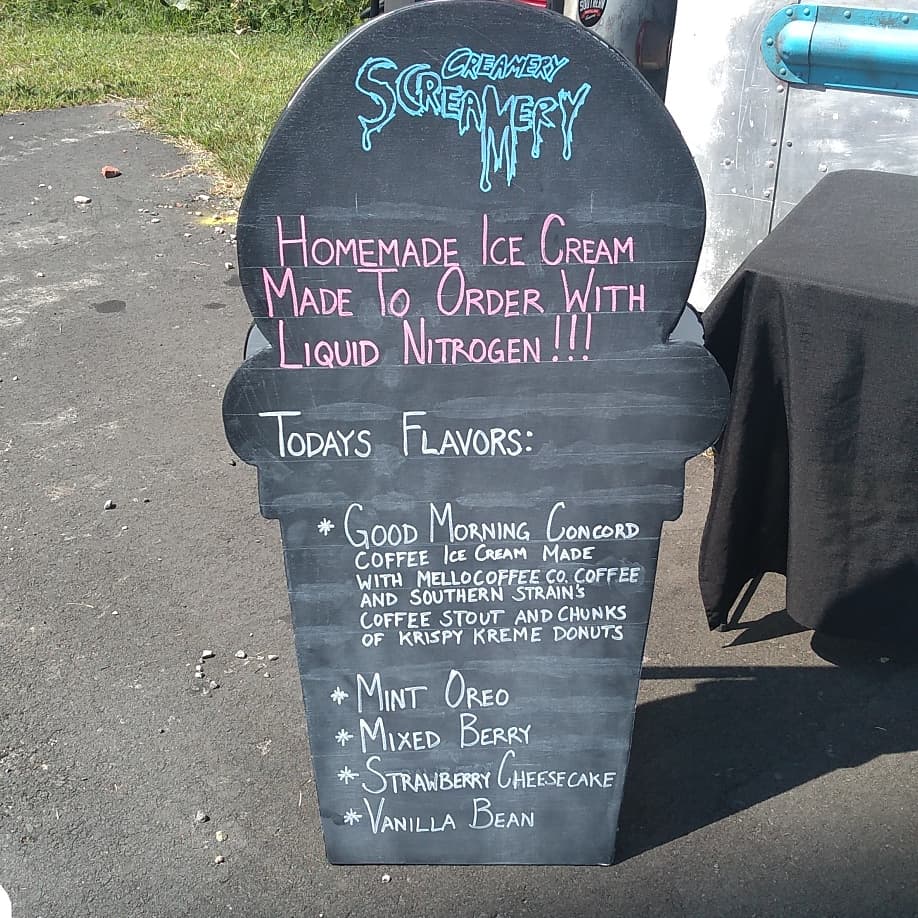 SOUTHERN
CREAMERY
SCREAMERY
HOMEMADE ICE CREAM
MADE TO ORDER WITH
LIQUID NITROGEN!!!
TODAYS FLAVORS:
* GOOD MORNING CONCORD
COFFEE ICE CREAM MADE
WITH MELLOCOFFEE CO. COFFEE
AND SOUTHERN STRAIN'S
COFFEE STOUT AND CHUNKS
OF KRISPY KREME DONUTS
* MINT OREO
* MIXED BERRY
* STRAWBERRY CHEESECAKE
* VANILLA BEAN